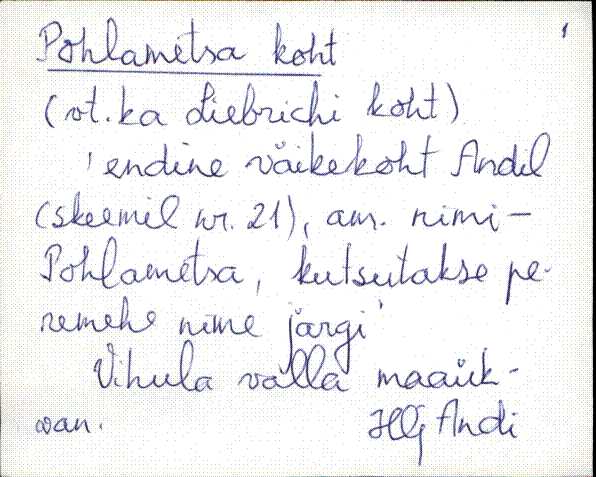 1
Pohlametsa koht
(vt. ka Liebrichi koht)
'endine väikekoht Andil
(skeemil nr. 21), am. nimi –
Pohlametsa, kutsutakse pe-
remehe nime järgi'
Vihula valla maaük-
Andi